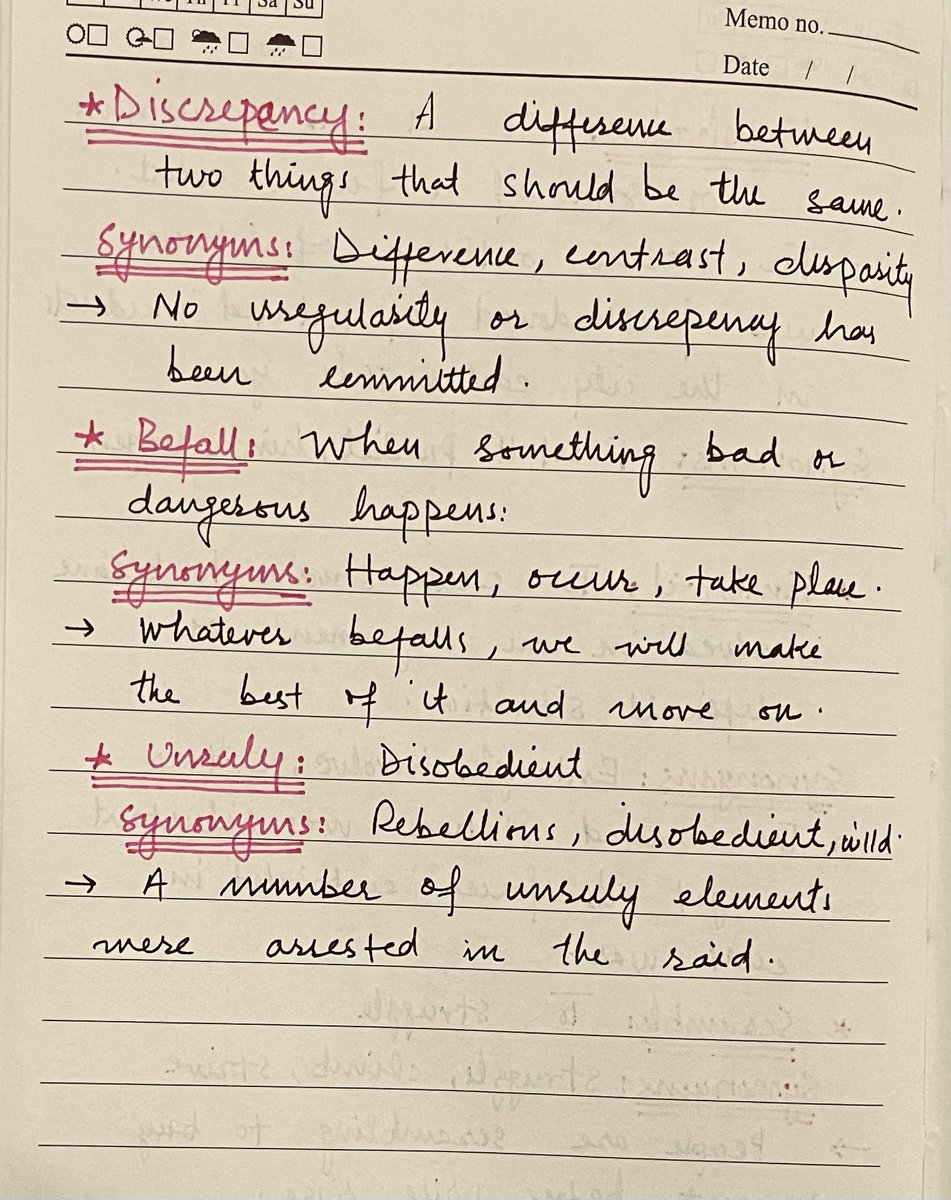 We Th Fr Sa Su
Memo no.
Date / /
*Discrepancy: A difference between
two things that should be the same.
Synonyms: Difference, contrast, disparity
→ No irregularity or discrepency has
been committed.
* Befall: When something bad or
dangerous happens:
Synonyms: Happen, occur, take place.
→ Whatever befalls, we will make
the best of it and move on.
* Unruly: Disobedient
Synonyms: Rebellious, disobedient, wild.
→ A number of unruly elements
were arrested in the raid.